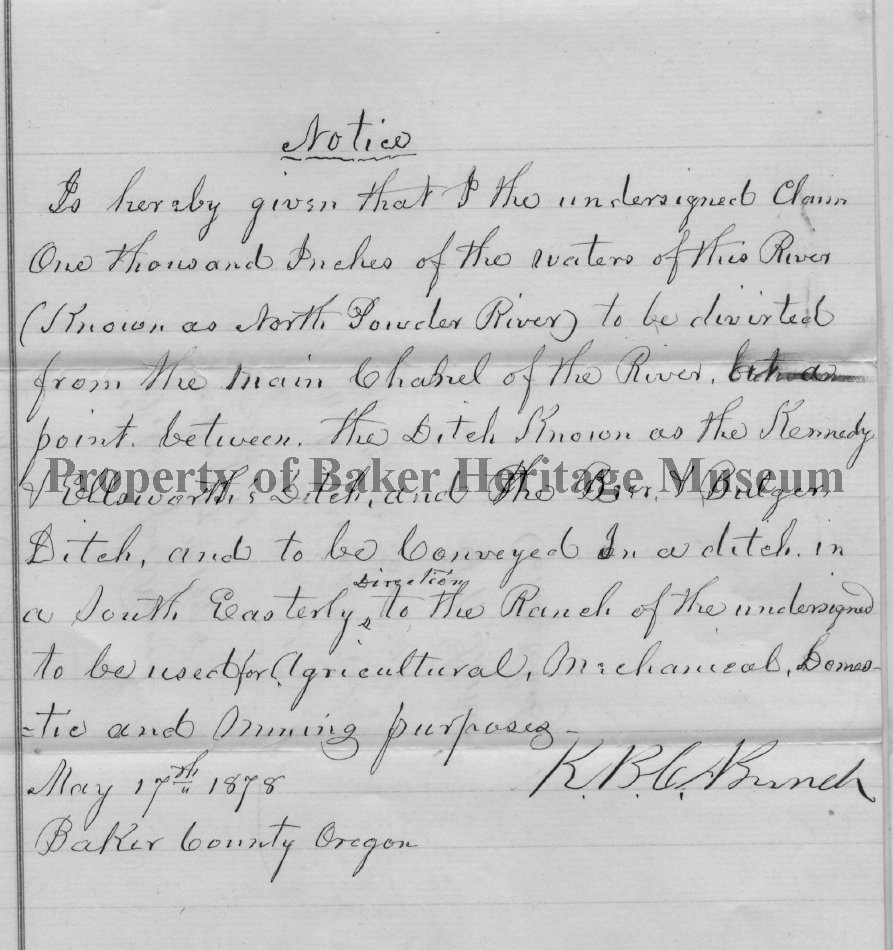 Notice
Is hereby given that I the undersigned Claim
One thousand Inches of the waters of this River
(Known as North Powder River) to be divirted
from the main Chanel of the River,
point. between. the Ditch Known as the Kennedy
Property of Baker Heritage Museum
& Ellsworth's Ditch, and the & Bulger
Ditch, and to be Conveyed In a ditch. in
a South Easterly Direction to the Ranch of the undersigned
to be used for Agricultural, Mechanical, Domes-
-tic and Mining purposes-
May 17th 1878
K. B. C. Bunch
Baker County Oregon